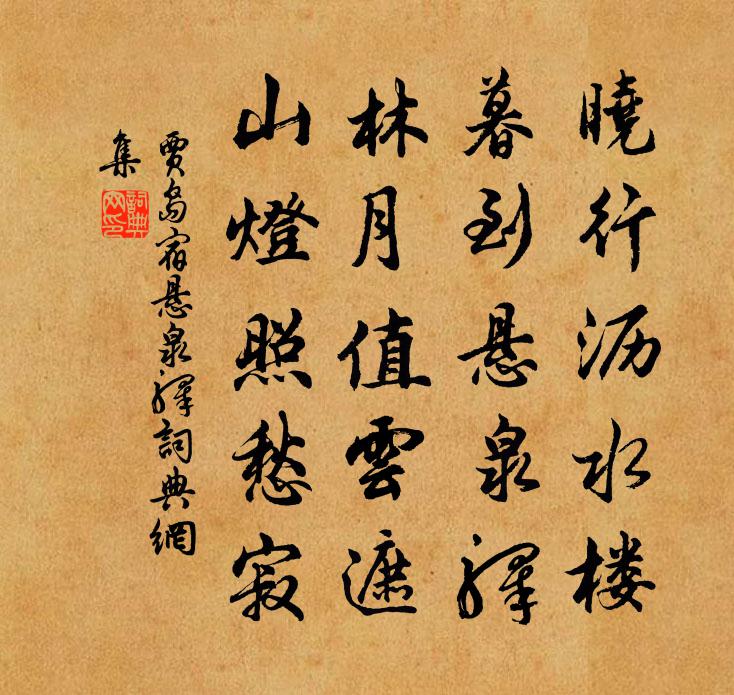 曉行沥水楼
暮到悬泉驛
林月值雲遮
山燈照愁寂
賈島宿悬泉驛詞典網
集
詞典网印